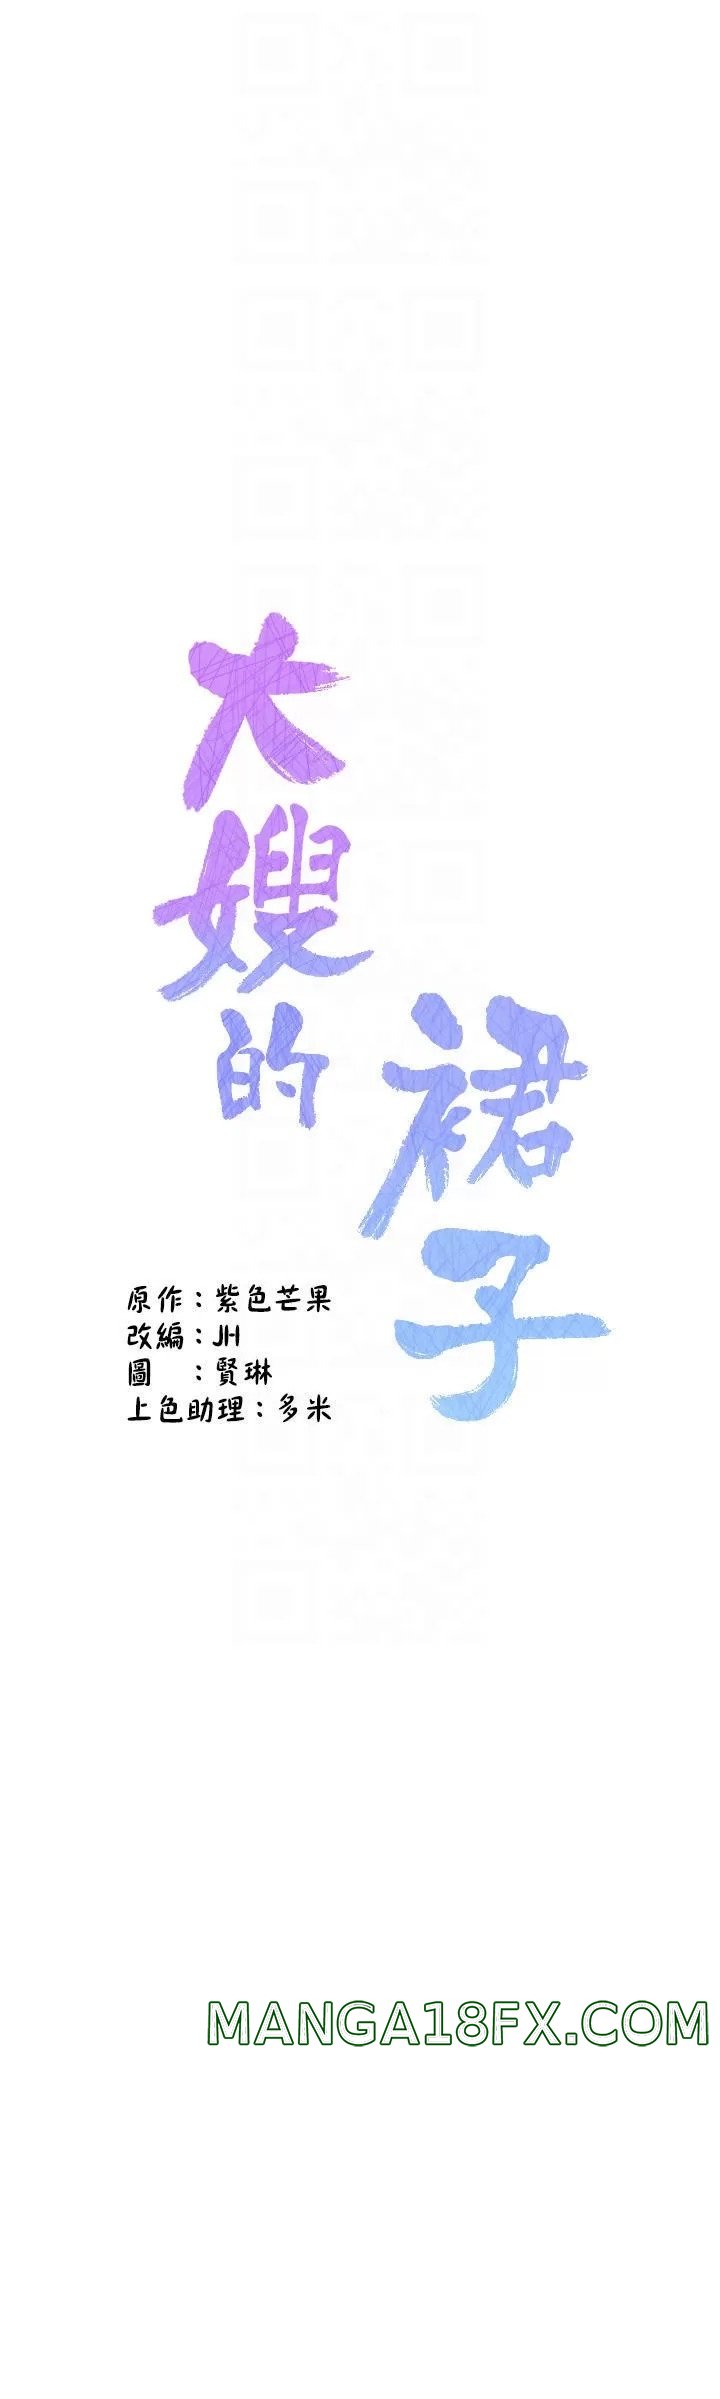 大嫂的
裙子
原作：紫色芒果
改編：JH
圖　：賢琳
上色助理：多米
MANGA18FX.COM